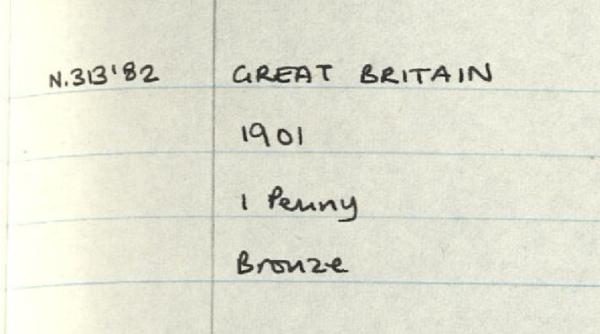 N.313'82 GREAT BRITAIN
1901
1 Penny
Bronze